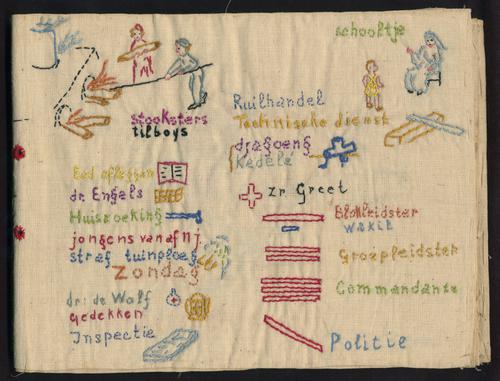 schooltje
stooksters
tilboys
Ruilhandel
Technische dienst
dragoens
Kedele
Eed afleggen
dr. Engels
zr Greet
Huiszoeking
Blokleidster
Wakil
jongens vanaf 11 j.
straf tuinploeg
Groepleidster
Zondag
Commandante
dr: de Wolf
gedekken
Inspectie
Politie